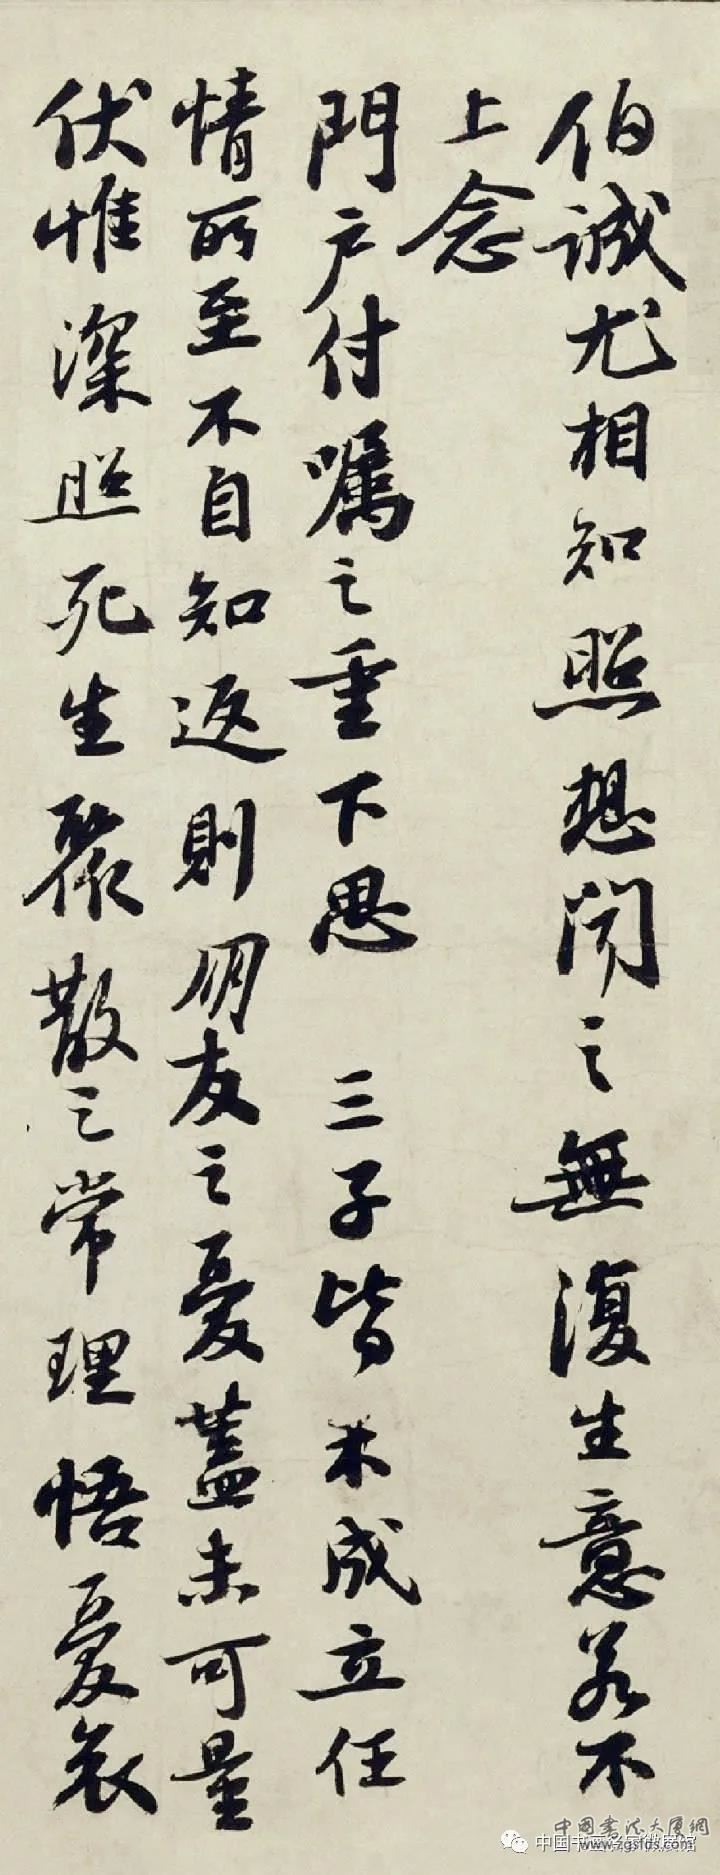 伯誠尤相知照想聞之無復生意若不
上念
門户付囑之重下思 三子皆未成立任
情所至不自知返則朋友之憂蓋未可量
伏惟深照死生聚散之常理悟憂哀
中国書法大厦網
www.zgsfds.com